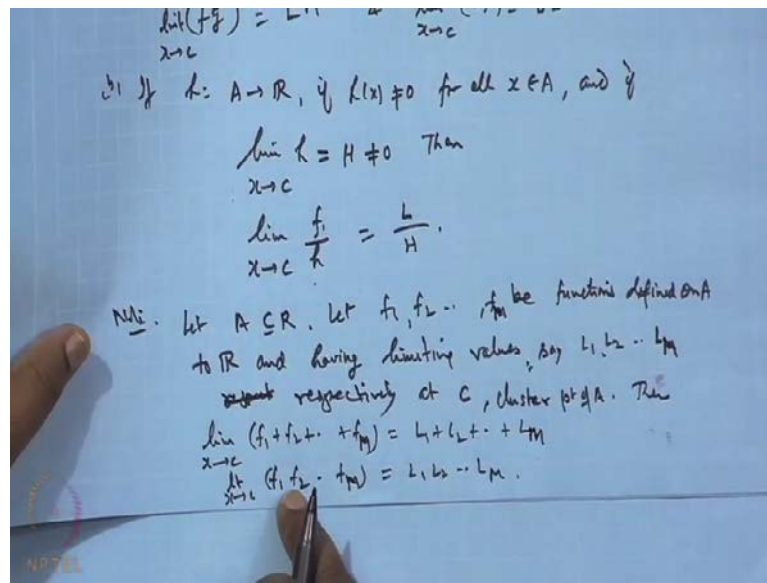 lim(fg) = LM
x→c x→c
If h: A→R, if h(x) ≠ 0 for all x ∈ A, and if
lim h = H ≠ 0 Then
x→c
lim f/h = L/H.
x→c
Note. Let A ⊆ R. Let f1, f2 .. , fm be functions defined on A
to R and having limiting values, say L1, L2 .. Lm
respectively at C, cluster pt of A. Then
lim (f1+f2+· +fm) = L1+L2+· +Lm
x→c
lt (f1 f2 · fm) = L1 L2 .. Lm.
x→c
NPTEL